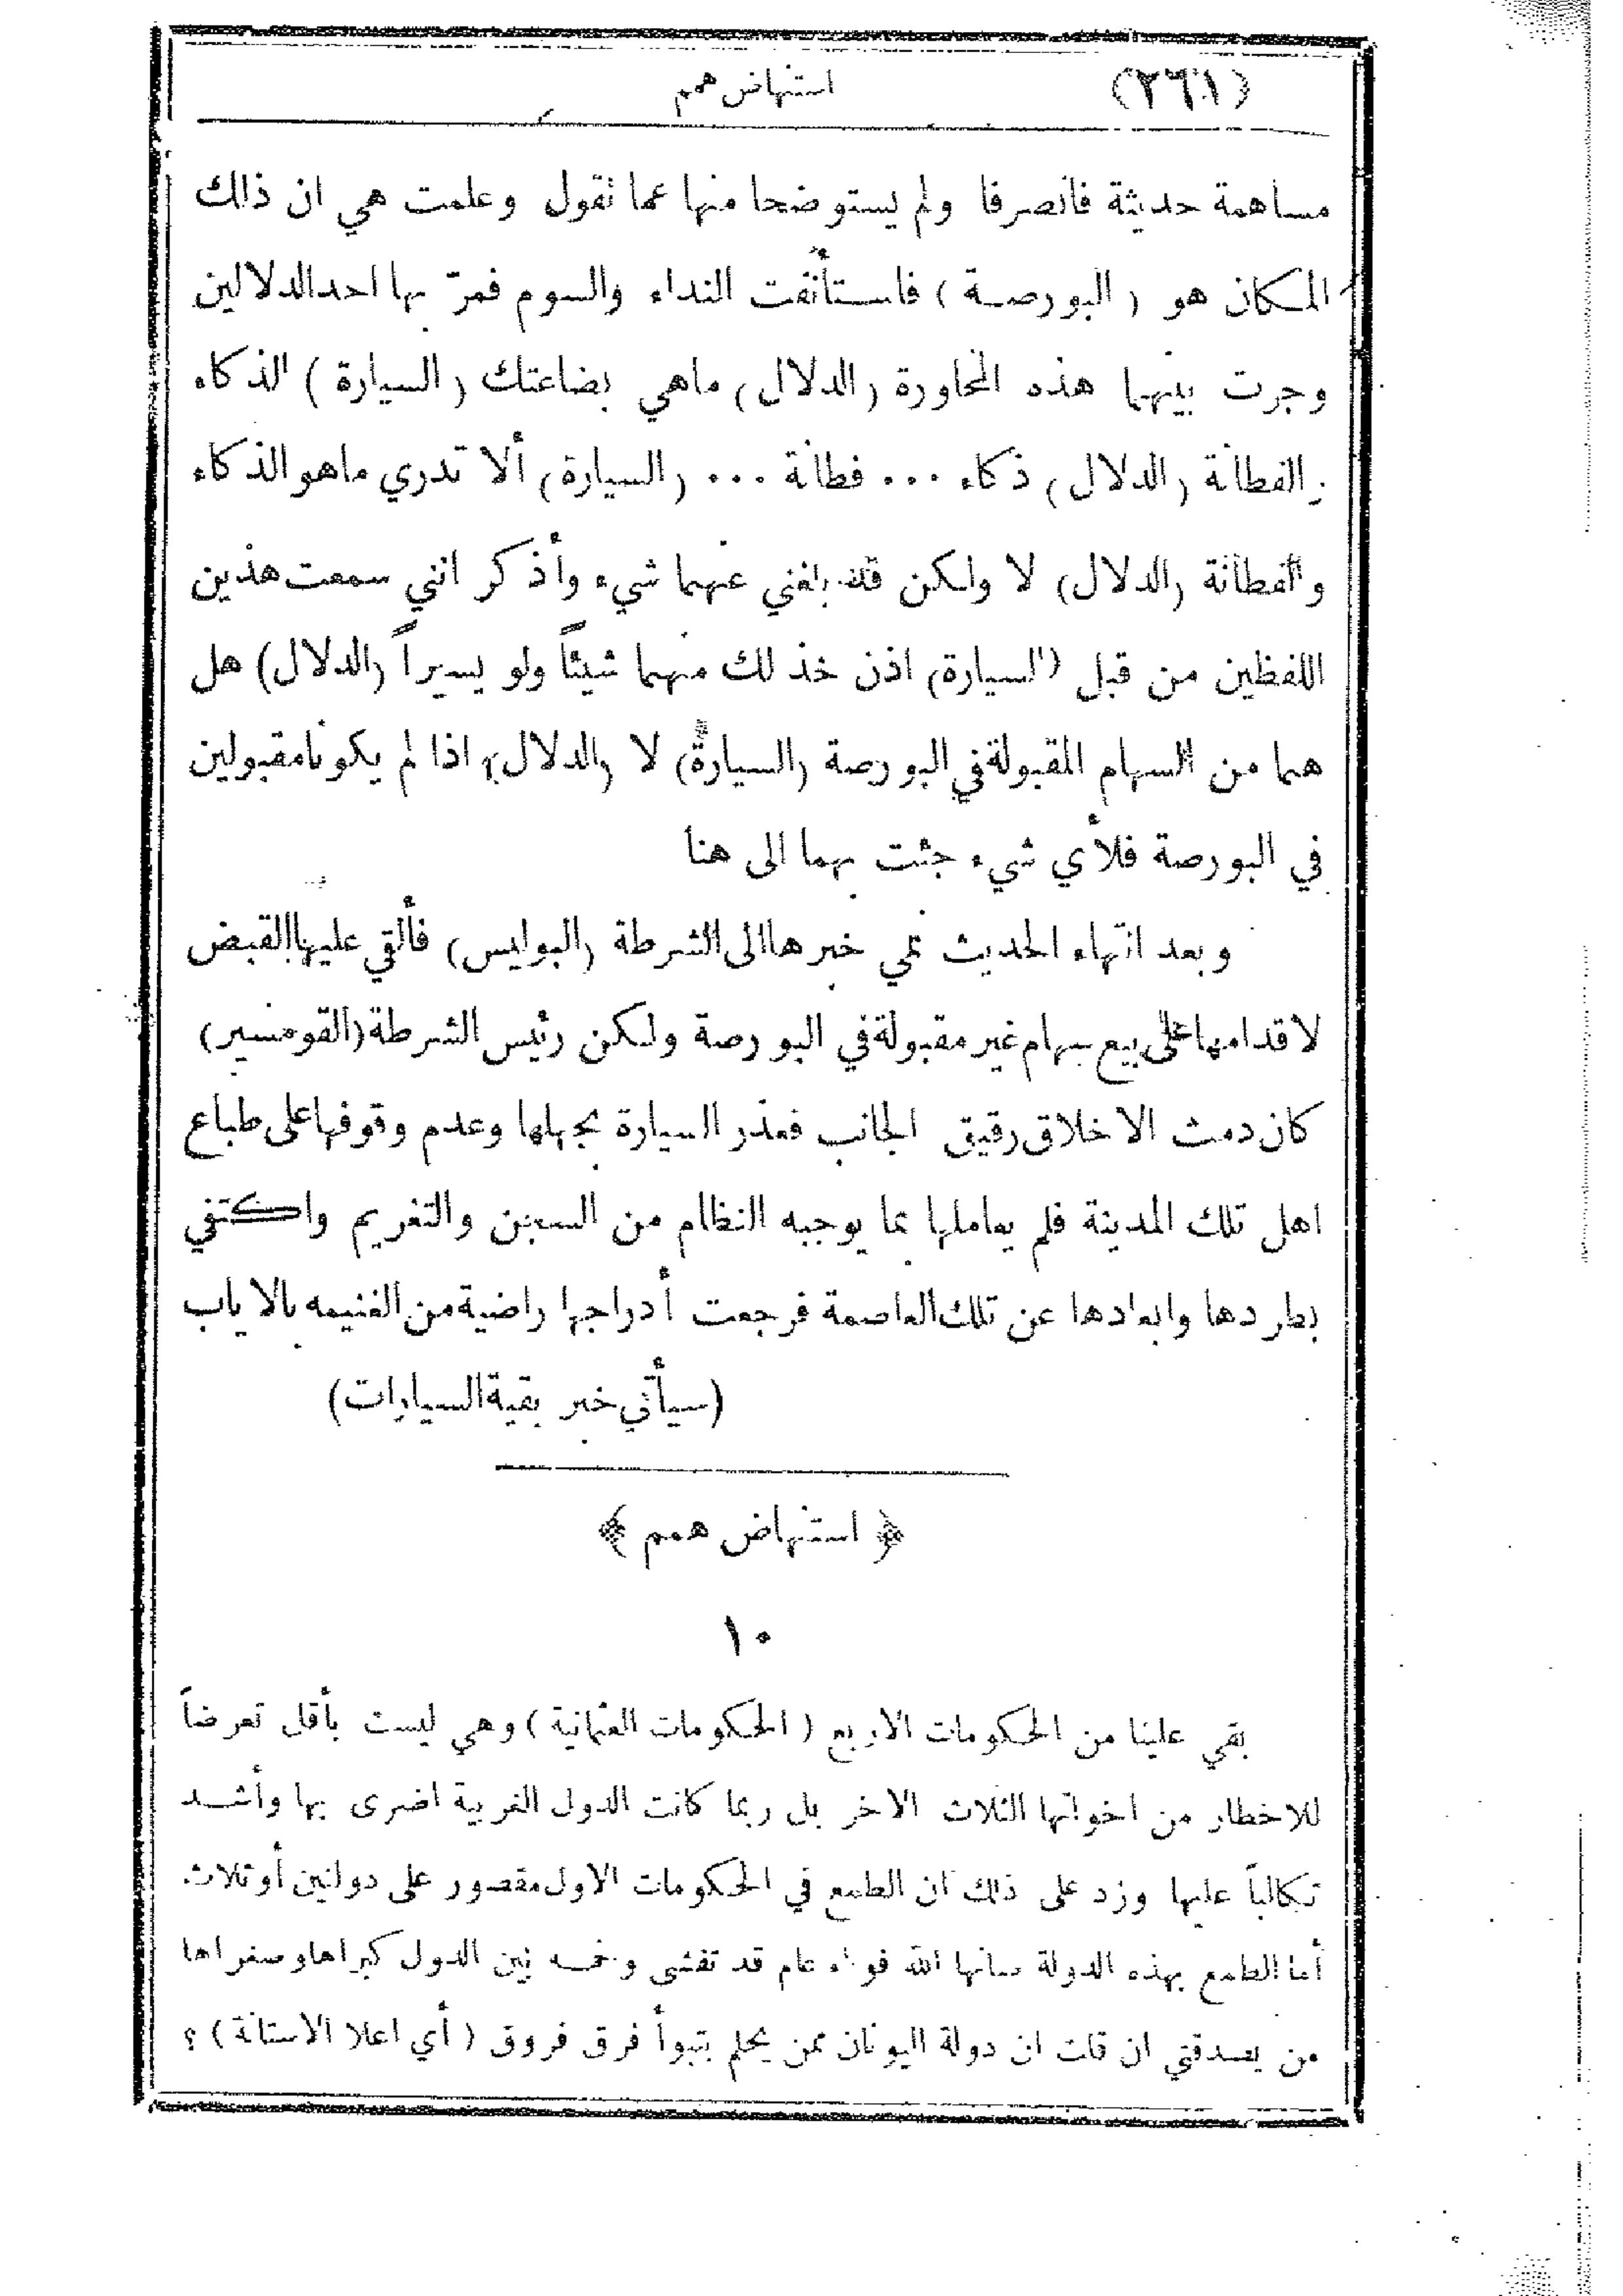 (٢٦١) استنهاض همم
مساهمة حديثة فانصرفا ولم يستوضحا منها عما تقول وعلمت هي ان ذلك
المكان هو (البورصة) فاستأنفت النداء والسوم فمرّ بها احد الدلالين
وجرت بينهما هذه المحاورة (الدلال) ماهي بضاعتك (السيارة) الذكاء
والفطانة (الدلال) ذكاء ... فطانة ... (السيارة) ألا تدري ماهو الذكاء
والفطانة (الدلال) لا ولكن قد بلغني عنهما شيء وأذكر انني سمعت هذين
اللفظين من قبل (السيارة) اذن خذ لك منهما شيئاً ولو يسيراً (الدلال) هل
هما من السهام المقبولة في البورصة (السيارة) لا (الدلال) اذا لم يكونا مقبولين
في البورصة فلأي شيء جئت بهما الى هنا
وبعد انتهاء الحديث نمي خبرها الى الشرطة (البوليس) فألقي عليها القبض
لاقدامها على بيع سهام غير مقبولة في البورصة ولكن رئيس الشرطة (القومسير)
كان دمث الاخلاق رقيق الجانب فعذر السيارة بجهلها وعدم وقوفها على طباع
اهل تلك المدينة فلم يعاملها بما يوجبه النظام من السجن والتغريم واكتفي
بطردها وابعادها عن تلك العاصمة فرجعت أدراجها راضية من الغنيمه بالاياب
(سيأتي خبر بقية السيارات)
﴿ استنهاض همم ﴾
١٠
بقي علينا من الحكومات الاربع (الحكومات العثمانية) وهي ليست بأقل تعرضاً
للاخطار من اخواتها الثلاث الاخر بل ربما كانت الدول الغربية اضرى بها وأشد
تكالباً عليها وزد على ذلك ان الطمع في الحكومات الاول مقصور على دولتين أو ثلاث
أما الطمع بهذه الدولة صانها الله فوباء عام قد تفشى وخمه بين الدول كبراها وصغراها
من يصدقني ان قلت ان دولة اليونان ممن يحلم بتبوأ فرق فروق (أي اعلا الاستانة) ؟